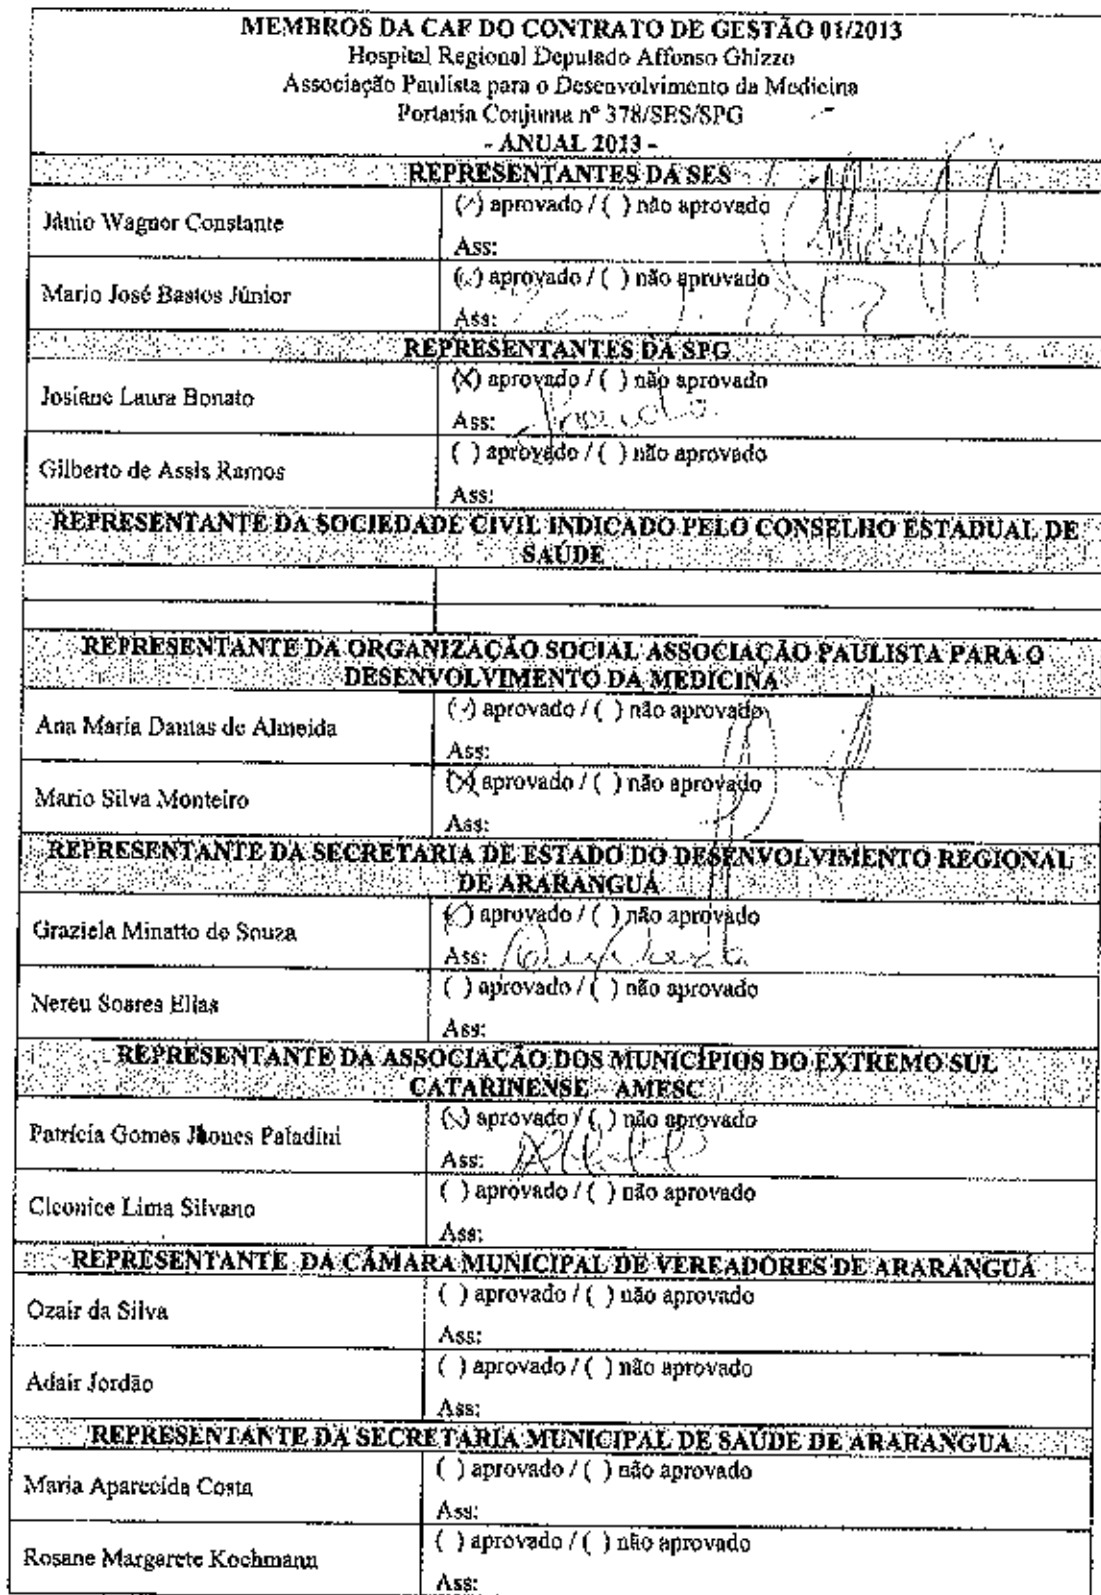 MEMBROS DA CAF DO CONTRATO DE GESTÃO 01/2013
Hospital Regional Deputado Affonso Ghizzo
Associação Paulista para o Desenvolvimento da Medicina
Portaria Conjunta nº 378/SES/SPG
- ANUAL 2013 -
REPRESENTANTES DA SES
Jânio Wagner Constante
(✓) aprovado / ( ) não aprovado
Ass:
Mario José Bastos Júnior
(✓) aprovado / ( ) não aprovado
Ass:
REPRESENTANTES DA SPG
Josiane Laura Bonato
(X) aprovado / ( ) não aprovado
Ass:
Gilberto de Assis Ramos
( ) aprovado / ( ) não aprovado
Ass:
REPRESENTANTE DA SOCIEDADE CIVIL INDICADO PELO CONSELHO ESTADUAL DE
SAÚDE
REPRESENTANTE DA ORGANIZAÇÃO SOCIAL ASSOCIAÇÃO PAULISTA PARA O
DESENVOLVIMENTO DA MEDICINA
Ana Maria Dantas de Almeida
(✓) aprovado / ( ) não aprovado
Ass:
Mario Silva Monteiro
(X) aprovado / ( ) não aprovado
Ass:
REPRESENTANTE DA SECRETARIA DE ESTADO DO DESENVOLVIMENTO REGIONAL
DE ARARANGUÁ
Graziela Minatto de Souza
(✓) aprovado / ( ) não aprovado
Ass:
Nereu Soares Elias
( ) aprovado / ( ) não aprovado
Ass:
REPRESENTANTE DA ASSOCIAÇÃO DOS MUNICÍPIOS DO EXTREMO SUL
CATARINENSE - AMESC
Patrícia Gomes Jhones Paladini
(✓) aprovado / ( ) não aprovado
Ass:
Cleonice Lima Silvano
( ) aprovado / ( ) não aprovado
Ass:
REPRESENTANTE DA CÂMARA MUNICIPAL DE VEREADORES DE ARARANGUÁ
Ozair da Silva
( ) aprovado / ( ) não aprovado
Ass:
Adair Jordão
( ) aprovado / ( ) não aprovado
Ass:
REPRESENTANTE DA SECRETARIA MUNICIPAL DE SAÚDE DE ARARANGUA
Maria Aparecida Costa
( ) aprovado / ( ) não aprovado
Ass:
Rosane Margarete Kochmann
( ) aprovado / ( ) não aprovado
Ass: